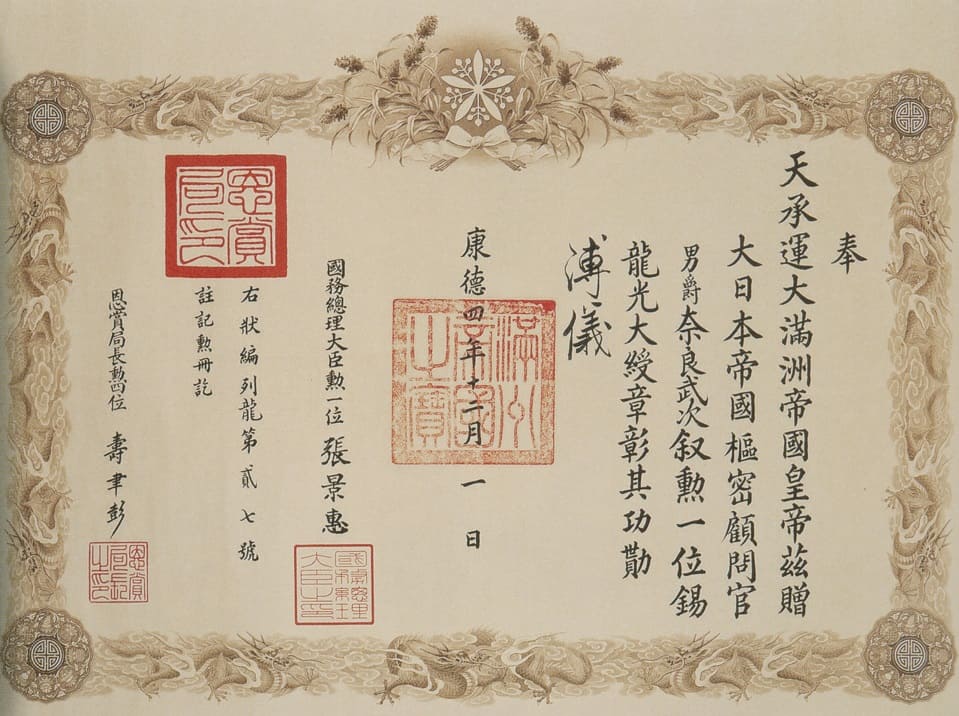 奉
天承運大滿洲帝國皇帝茲贈
大日本帝國樞密顧問官
男爵奈良武次叙勳一位錫
龍光大綬章彰其功勛
溥儀
滿州帝國之寶
康德四年十二月一日
國務總理大臣勳一位張景惠
國務總理大臣之印
右狀編列龍第貳七號
註記勳冊訖
恩賞局印
恩賞局長勲四位壽聿彭
恩賞局長之印